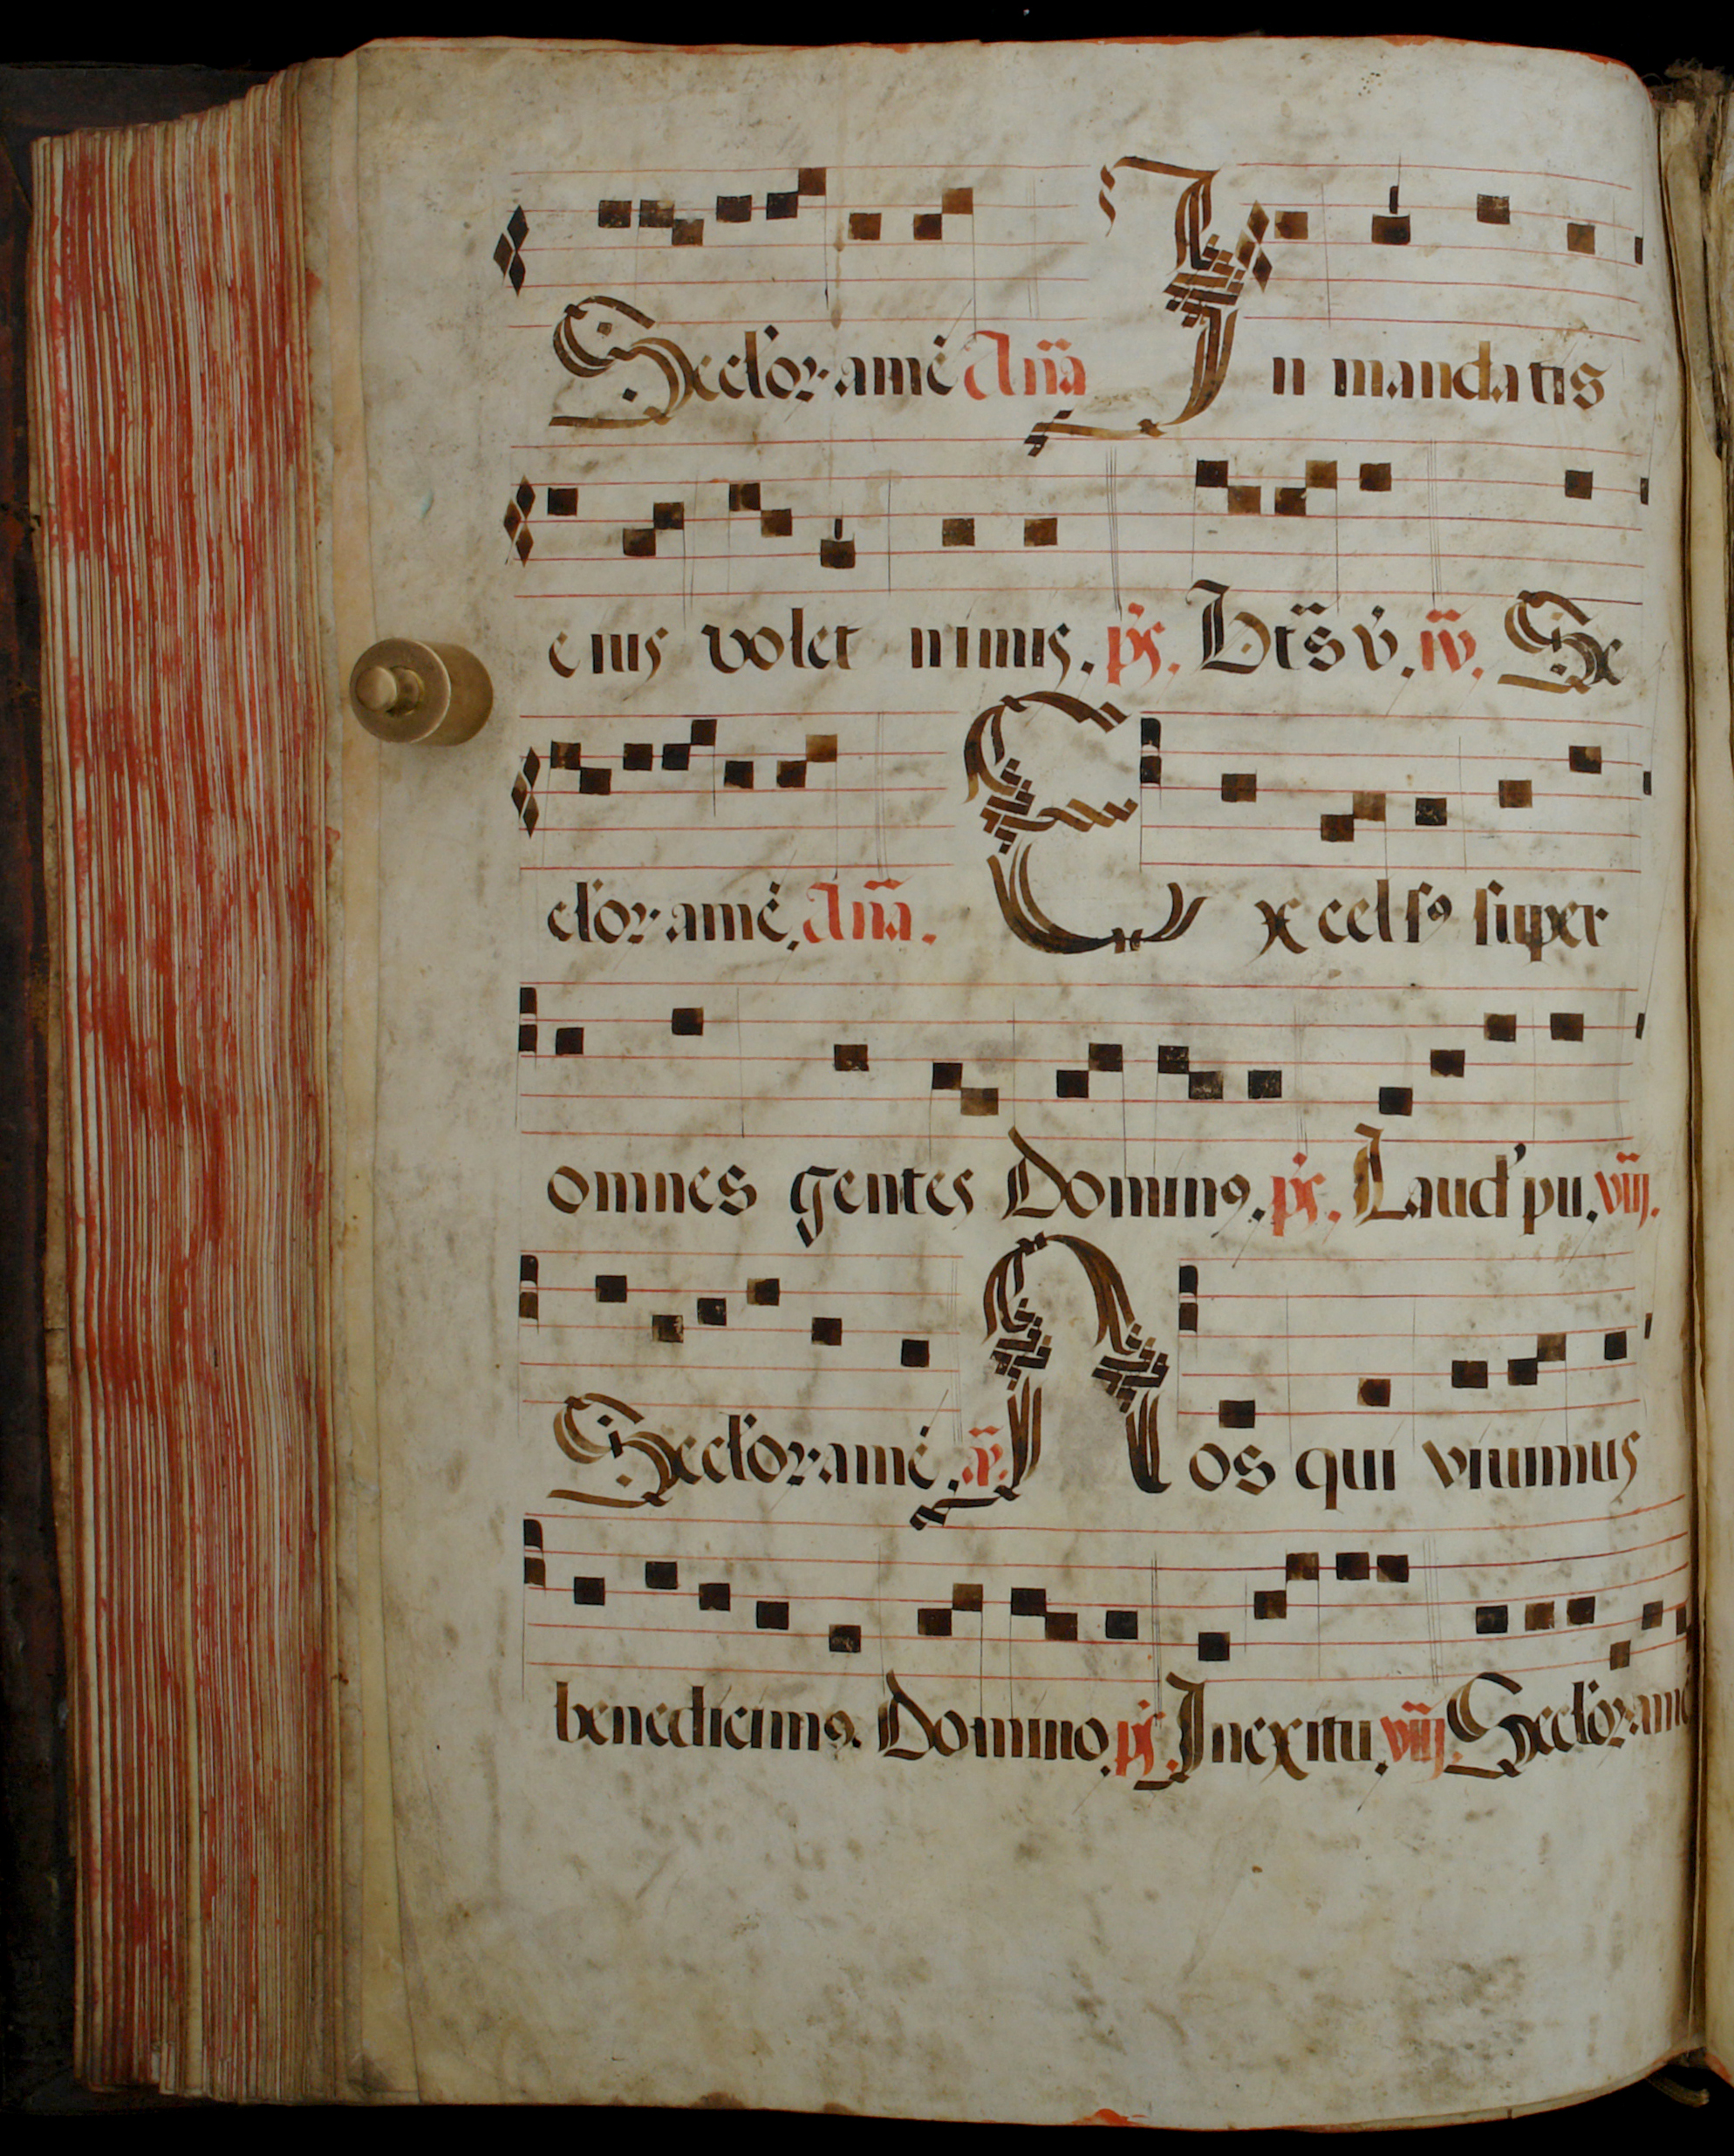 Seclor. amē Añā In mandatis
eius volet nimis. ps. Bt̄s v̇. iv. Se
clor. amē. Añā. Excelsꝰ super
omnes gentes Dominꝰ. ps. Laud' pu. viij.
Seclor. amē. a. Nos qui viuimus
benedicimꝰ. Domino. ps. In exitu. viij. Seclor. amē